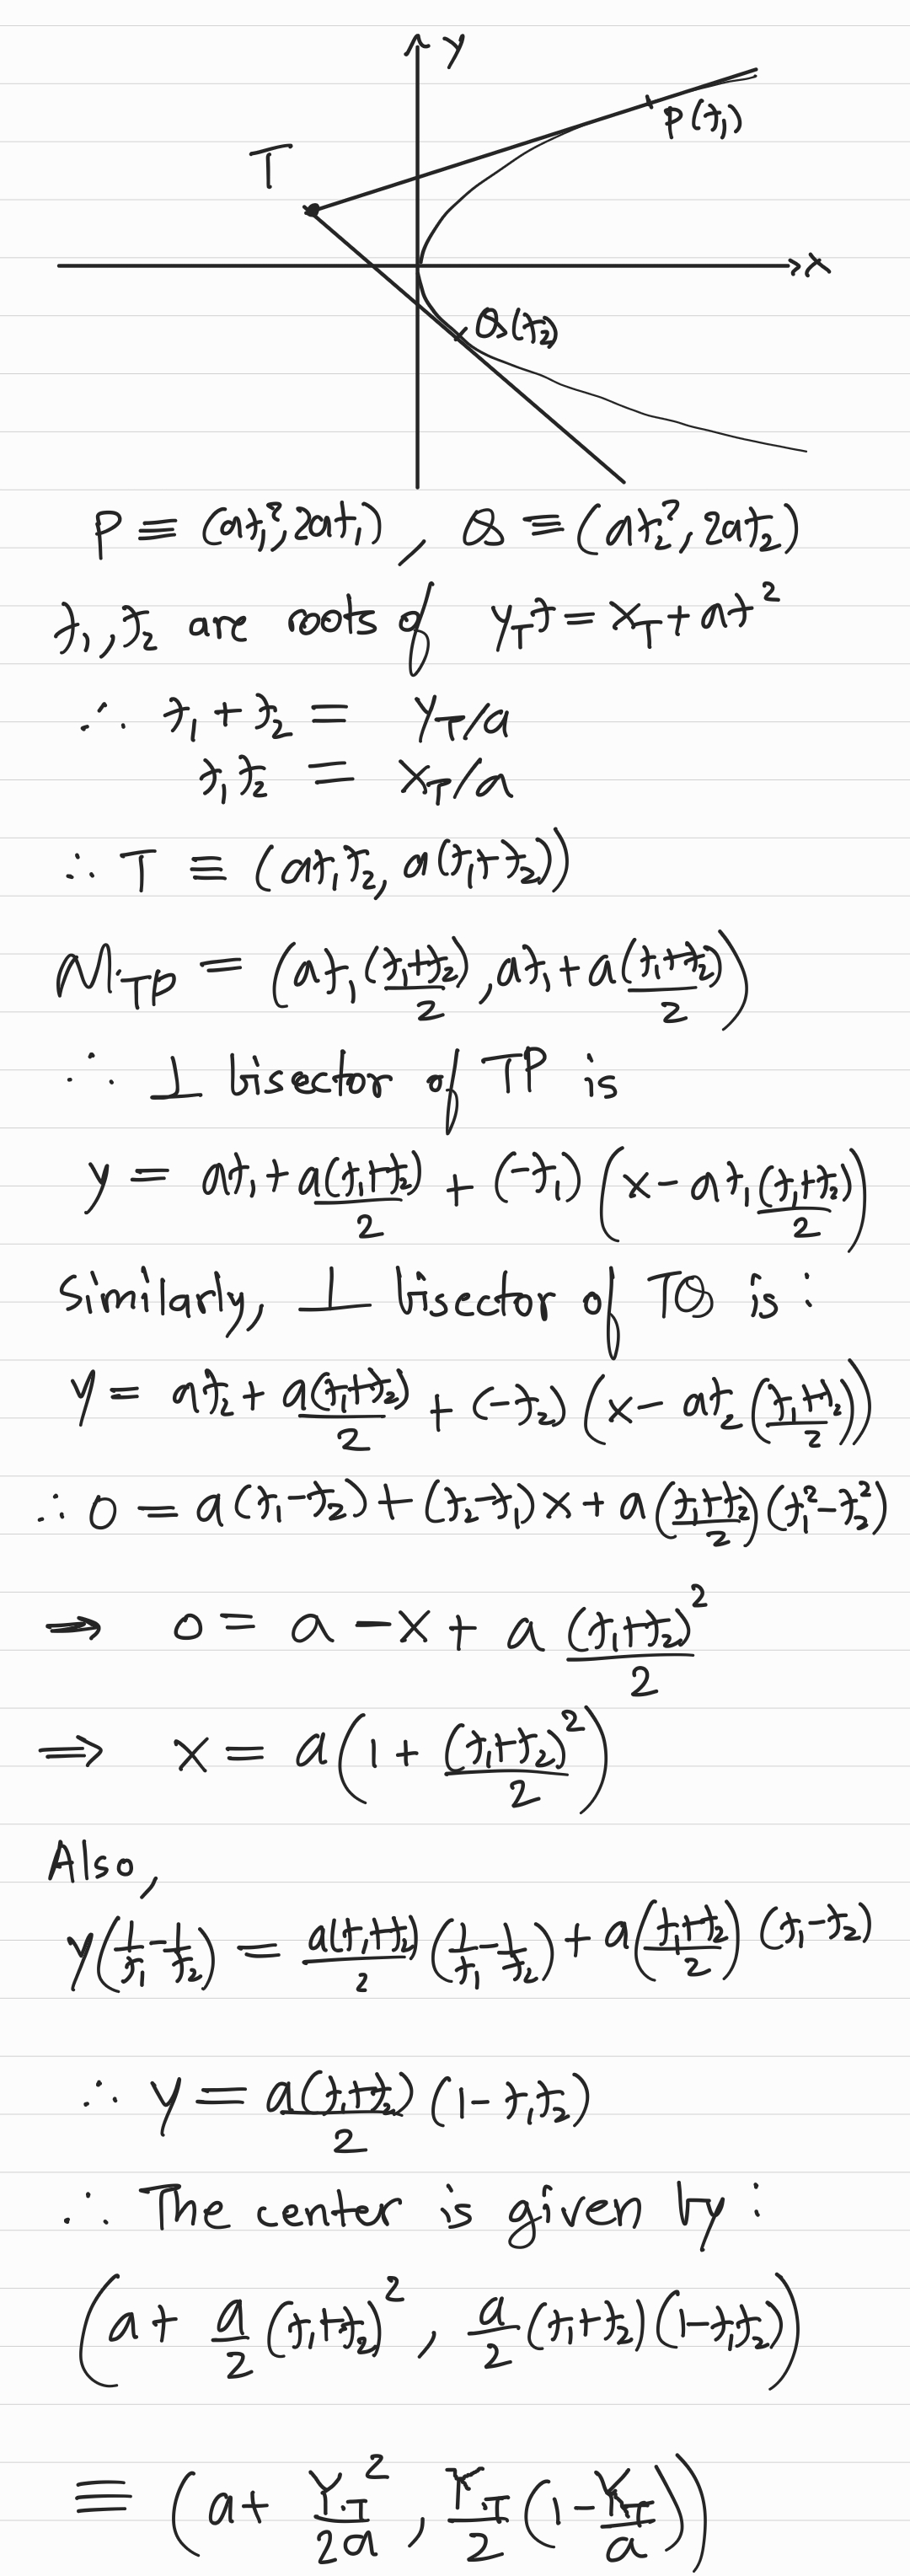 y
P(t₁)
T
x
Q(t₂)
P ≡ (at₁², 2at₁) , Q ≡ (at₂², 2at₂)
t₁, t₂ are roots of y_T t = x_T + at²
∴ t₁ + t₂ = y_T/a
t₁t₂ = x_T/a
∴ T ≡ (at₁t₂, a(t₁+t₂))
M_TP = (at₁(t₁+t₂)/2, at₁ + a(t₁+t₂)/2)
∴ ⊥ bisector of TP is
y = at₁ + a(t₁+t₂)/2 + (-t₁)(x - at₁(t₁+t₂)/2)
Similarly, ⊥ bisector of TQ is :
y = at₂ + a(t₁+t₂)/2 + (-t₂)(x - at₂(t₁+t₂)/2)
∴ 0 = a(t₁-t₂) + (t₂-t₁)x + a((t₁+t₂)/2)(t₁²-t₂²)
⇒ 0 = a - x + a (t₁+t₂)²/2
⇒ x = a(1 + (t₁+t₂)²/2)
Also,
y(1/t₁ - 1/t₂) = a(t₁+t₂)/2 (1/t₁ - 1/t₂) + a((t₁+t₂)/2)(t₁-t₂)
∴ y = a(t₁+t₂)/2 (1 - t₁t₂)
∴ The center is given by :
(a + a/2 (t₁+t₂)², a/2 (t₁+t₂)(1-t₁t₂))
≡ (a + Y_T²/2a, Y_T/2 (1 - X_T/a))